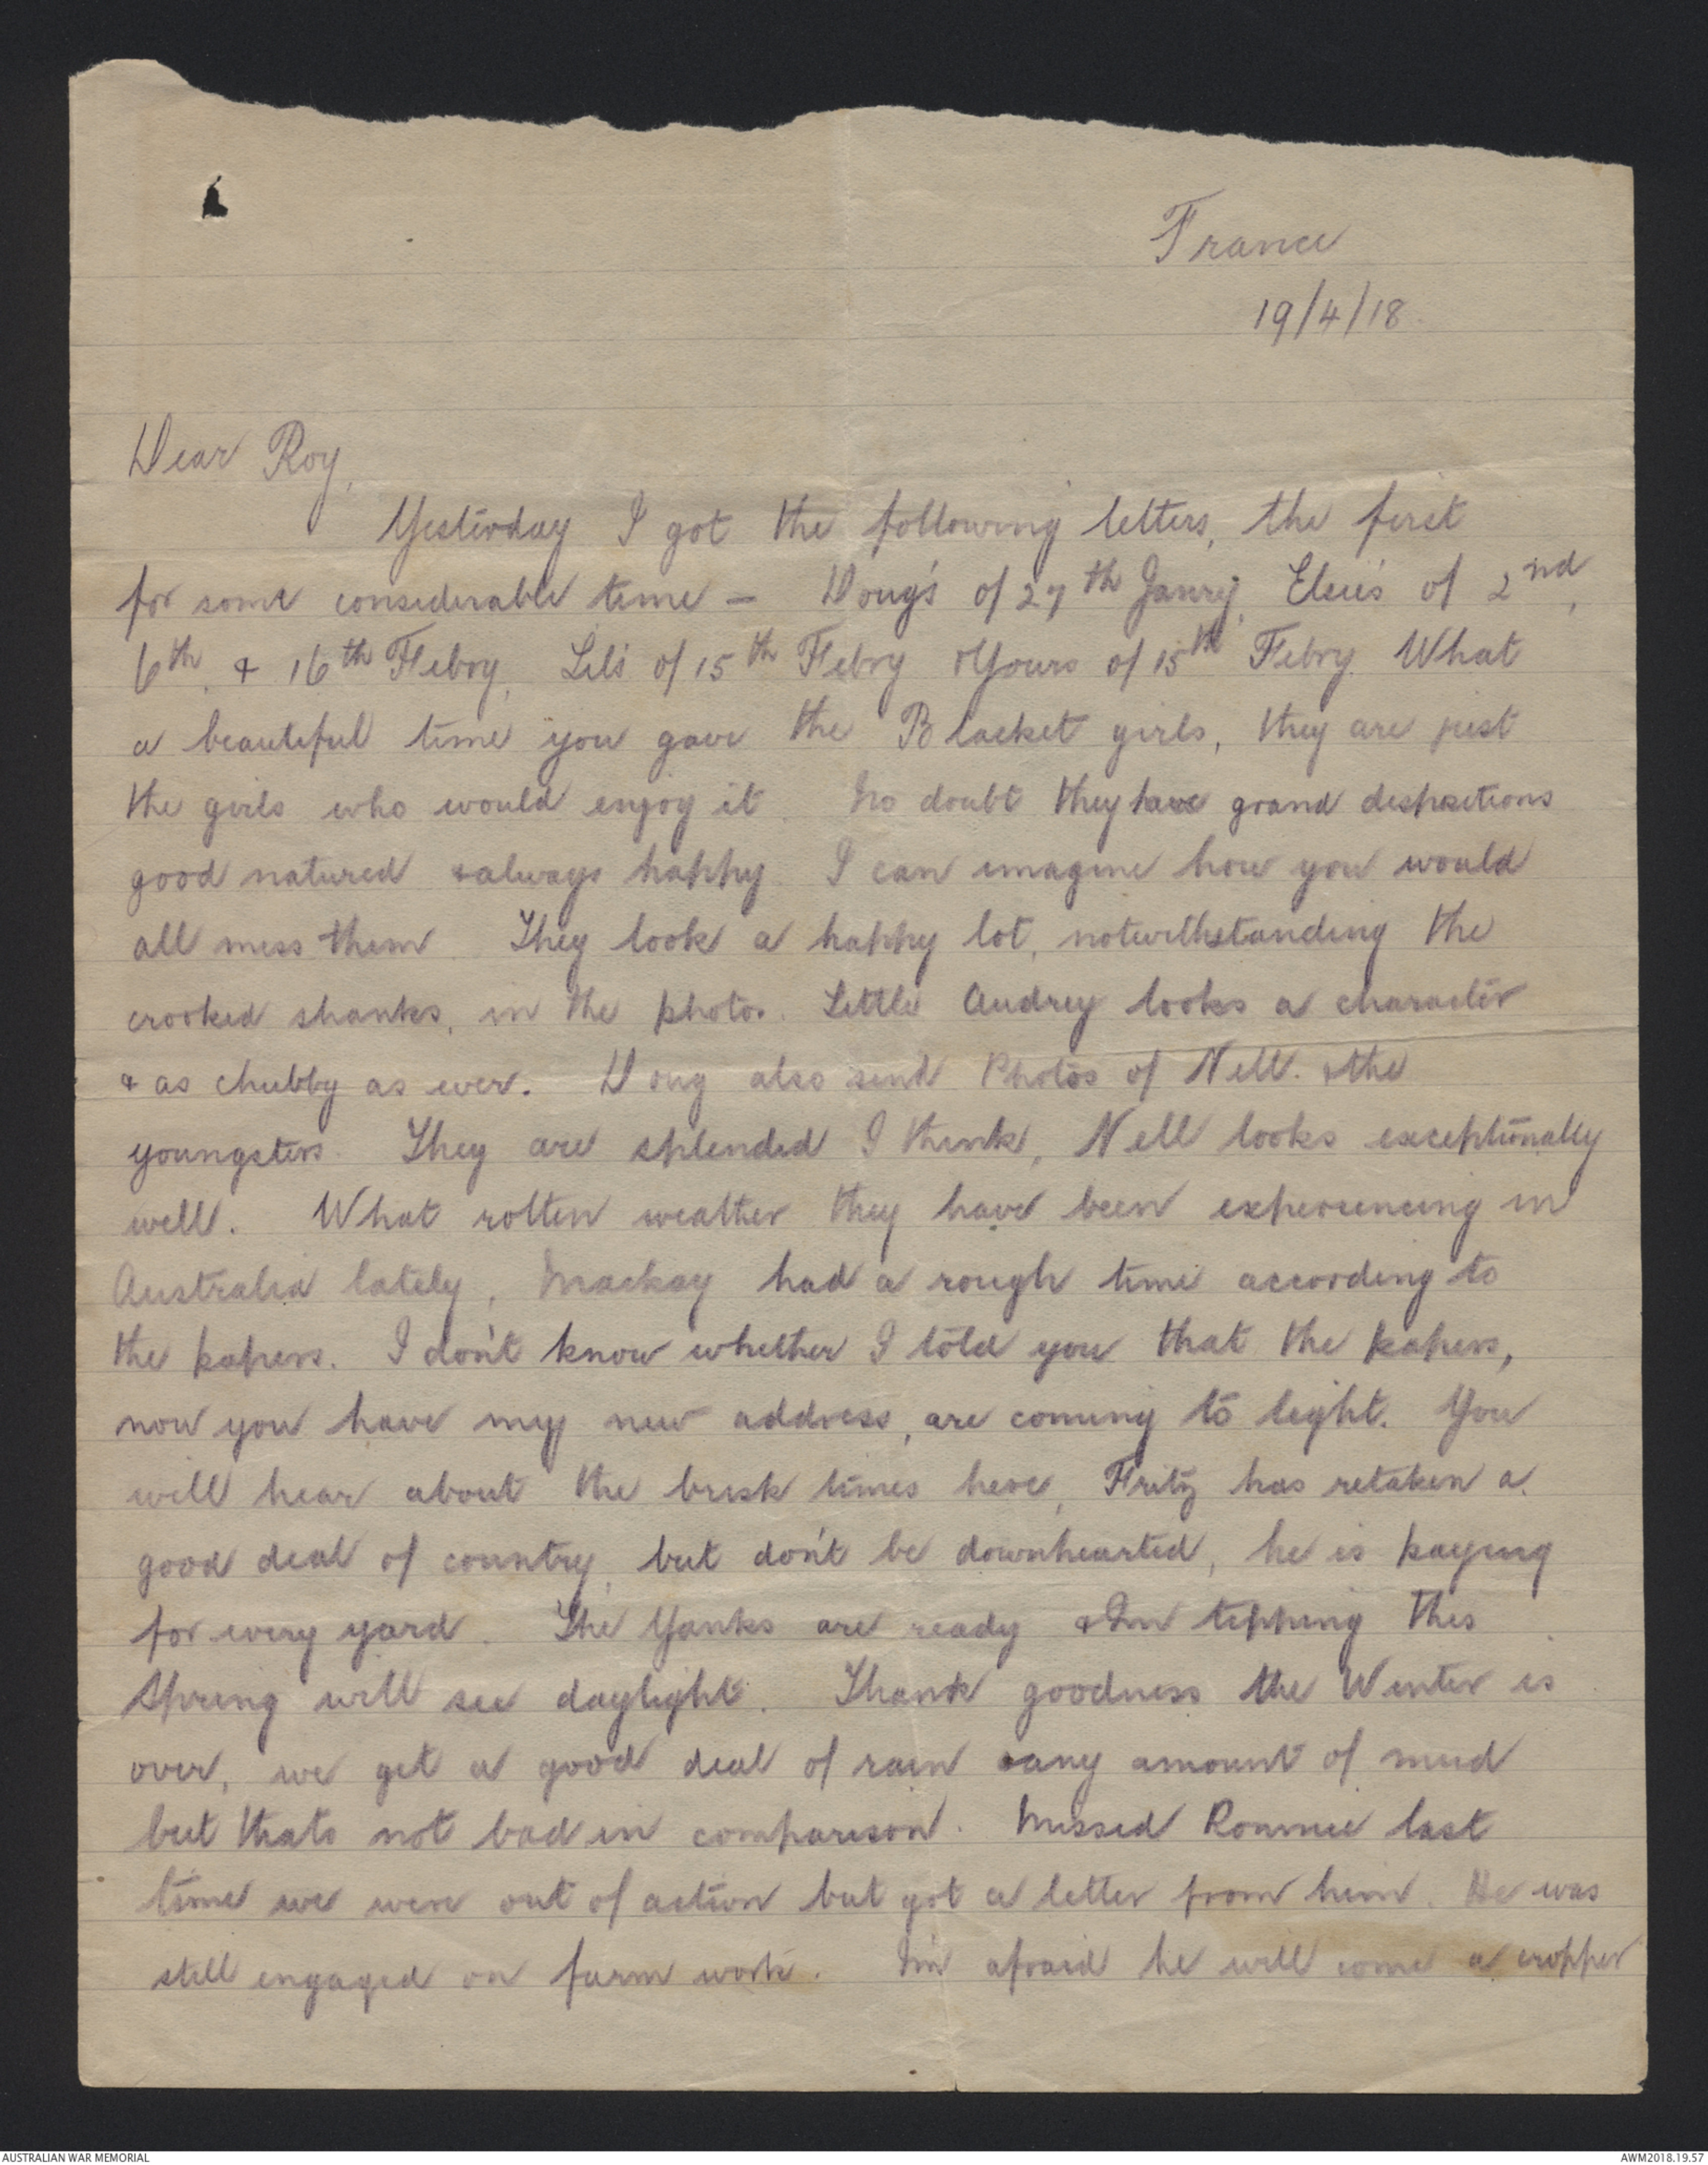 France
19/4/18.
Dear Roy,
Yesterday I got the following letters, the first
for some considerable time - Doug's of 27th Janry, Elsie's of 2nd,
6th, & 16th Febry, Lil's of 15th Febry & Yours of 15th Febry. What
a beautiful time you gave the Blacket girls, they are just
the girls who would enjoy it. No doubt they have grand dispositions
good natured & always happy. I can imagine how you would
all miss them. They look a happy lot, notwithstanding the
crooked shanks, in the photo. Little Audrey looks a character
& as chubby as ever. Doug also send Photos of Nell. & the
youngsters. They are splendid I think, Nell looks exceptionally
well. What rotten weather they have been experiencing in
Australia lately, Mackay had a rough time according to
the papers. I don't know whether I told you that the papers,
now you have my new address, are coming to light. You
will hear about the brisk times here, Fritz has retaken a
good deal of country, but don't be downhearted, he is paying
for every yard. The Yanks are ready & I'm tipping this
Spring will see daylight. Thank goodness the Winter is
over, we get a good deal of rain & any amount of mud
but thats not bad in comparison. Missed Ronnie last
time we were out of action but got a letter from him. He was
still engaged on farm work. I'm afraid he will come a cropper
AUSTRALIAN WAR MEMORIAL
AWM2018.19.57